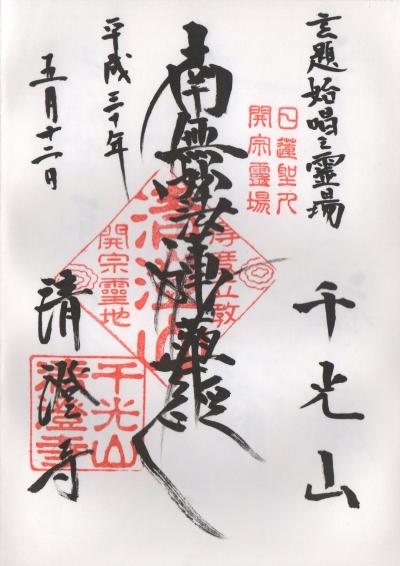 玄題始唱之靈場
千光山
日蓮聖人
開宗靈場
南無妙法蓮華経
清澄山
開宗靈地
平成三十年
五月十二日
清澄寺
千光山
清澄寺